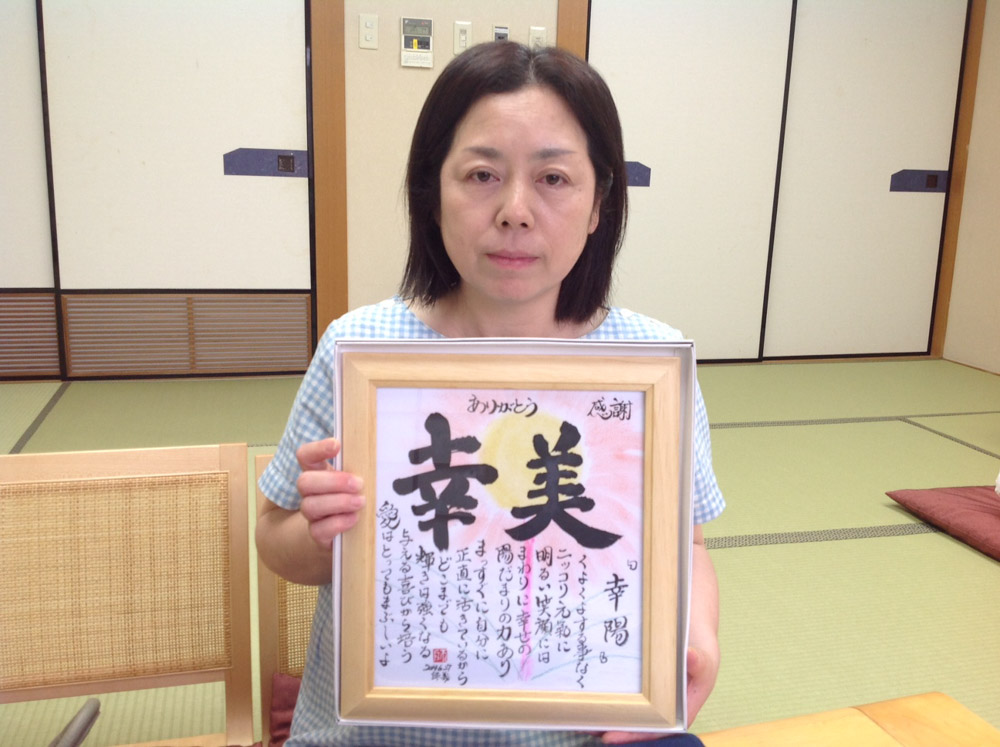 感謝
ありがとう
美幸
『幸陽』
くよくよする事なく
ニッコリ元氣に
明るい笑顔には
まわりに幸せの
陽だまりの力あり
まっすぐに自分に
正直に活きているから
どこまでも
輝きは強くなる
与える喜びから老う
愛はとってもまぶしいよ